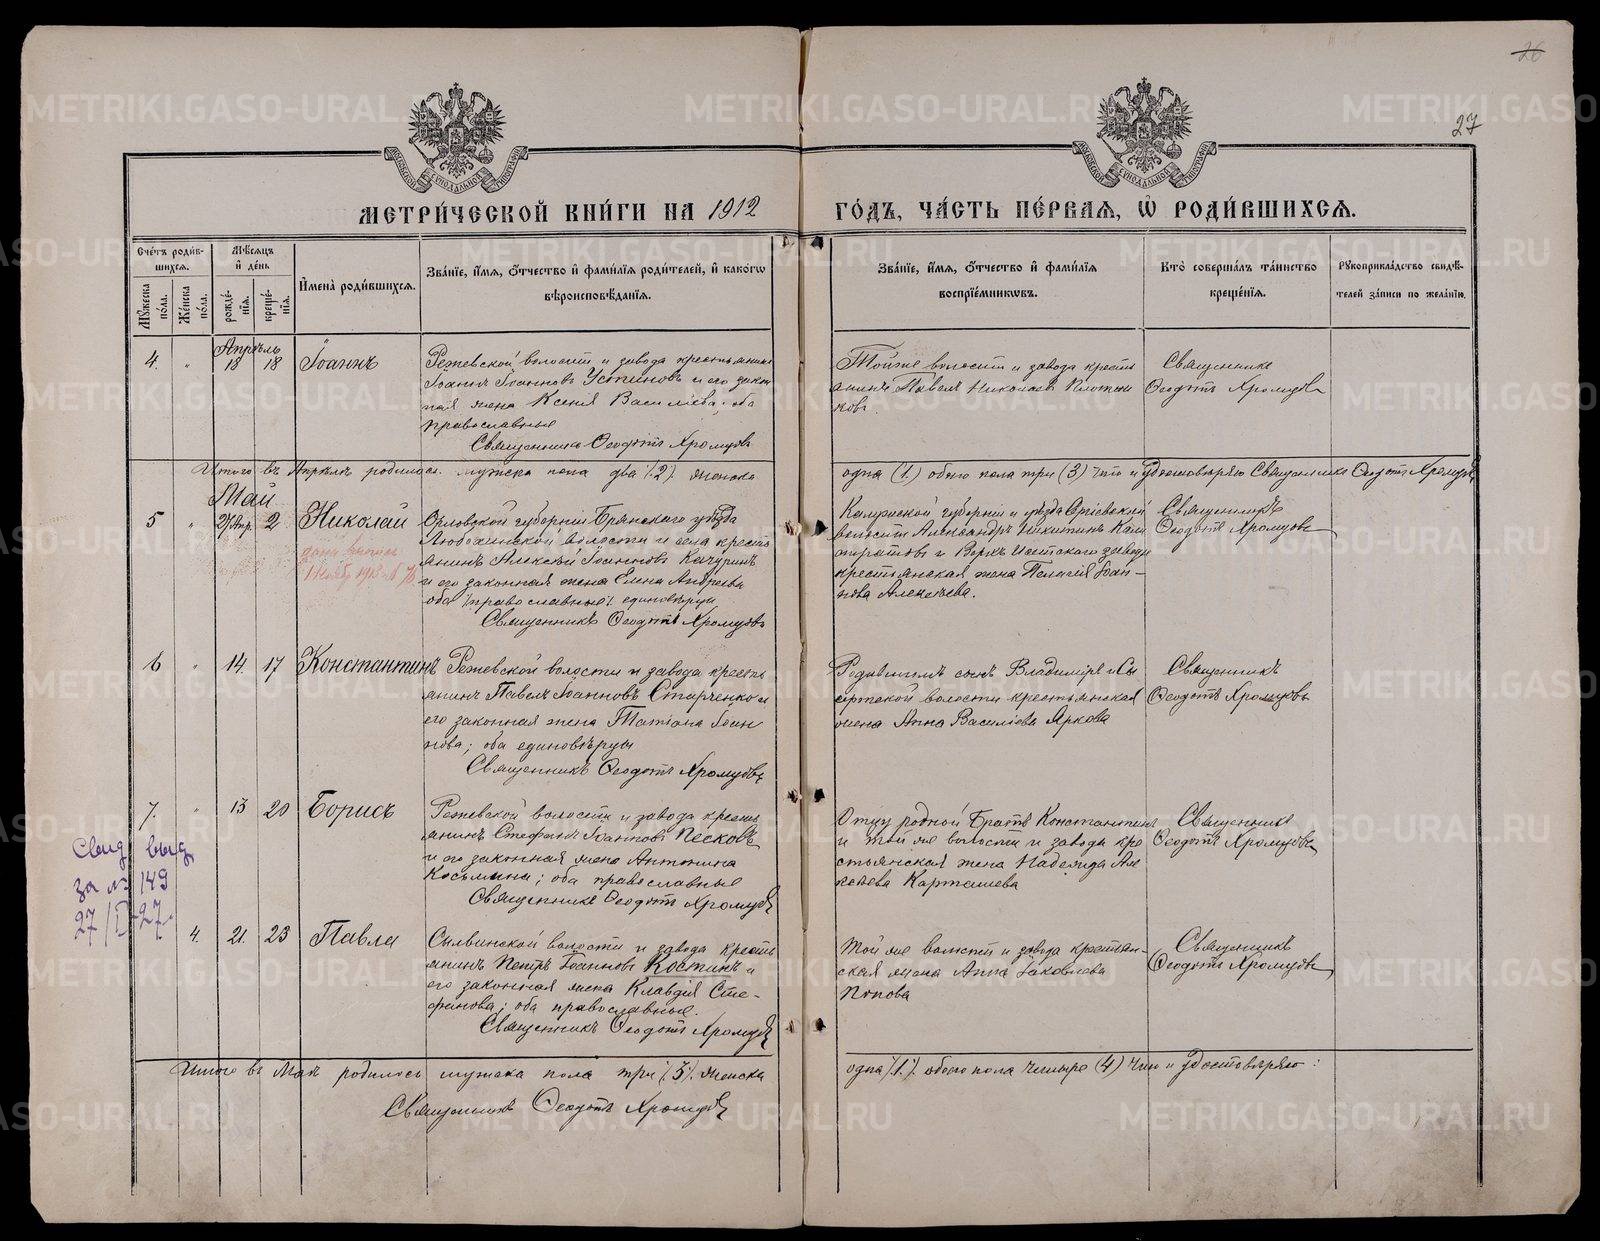 26
27
МЕТРИ́ЧЕСКОЙ КНИ́ГИ НА 1912 ГО́ДЪ, ЧА́СТЬ ПЕ́РВАѦ, Ѡ҆ РОДИ́ВШИХСѦ.
Сче́тъ роди́вшихсѧ.
Мѹ́жеска по́ла.
Же́нска по́ла.
Мѣ́сяцъ и҆ де́нь
рожде́нїѧ.
креще́нїѧ.
И҆мена̀ роди́вшихсѧ.
Зва́нїе, и҆́мѧ, ѻ҆́тчество и҆ фами́лїѧ роди́телей, и҆ како́гѡ
вѣроисповѣ́данїѧ.
Зва́нїе, и҆́мѧ, ѻ҆́тчество и҆ фами́лїѧ
воспрїе́мникѡвъ.
Кто̀ соверша́лъ та́инство
креще́нїѧ.
Рѹкоприкла́дство свидѣ́-
телей за́писи по жела́нїю.
Апрѣль
4. " 18 18 Іоаннъ
Режевской волости и завода крестьянинъ
Іоаннъ Іоанновъ Устиновъ и его закон
ная жена Ксенія Василіева; оба
православные
Священникъ Ѳеодотъ Хромцовъ
Тойже волости и завода кресть
янинъ Павелъ Николаевъ Плотни
ковъ.
Священникъ
Ѳеодотъ Хромцовъ
Итого въ Апрѣлѣ родилось мужска пола два (2) женска
одна (1) обоего пола три (3) что и удостовѣряю Священникъ Ѳеодотъ Хромцовъ
Май
5 " 27 Апр. 2 Николай
Орловской губерніи Брянскаго уѣзда
Любохинской волости и села кресть
янинъ Алексѣй Іоанновъ Качуринъ
и его законная жена Елена Андреева
оба (православные) единовѣрцы
Священникъ Ѳеодотъ Хромцовъ
Калужской губерніи и уѣзда Сергіевской
волости Александръ Никитинъ
и Верхъ Исетскаго завода
крестьянская жена Пелагія Іоан-
нова Алексѣева.
Священникъ
Ѳеодотъ Хромцовъ
6 " 14. 17 Константинъ
Режевской волости и завода кресть
янинъ Павелъ Іоанновъ Старченко и
его законная жена Татіана Іоан
нова; оба единовѣрцы
Священникъ Ѳеодотъ Хромцовъ
Родившихъ сынъ Владиміръ и Сы
сертской волости крестьянская
жена Анна Василіева Яркова
Священникъ
Ѳеодотъ Хромцовъ
7. " 13 20 Борисъ
Режевской волости и завода кресть
янинъ Стефанъ Іоанновъ Песковъ
и его законная жена Антонина
Косьмина; оба православные
Священникъ Ѳеодотъ Хромцовъ
Отцу родной братъ Константинъ
и той же волости и завода кре
стьянская жена Надежда Але
ксѣева Карташева
Священникъ
Ѳеодотъ Хромцовъ
Свид выд
за № 149
27/I-27.
4. 21. 23 Павла
Сылвинской волости и завода кресть
янинъ Петръ Іоанновъ Костинъ и
его законная жена Клавдія Сте-
фанова; оба православные.
Священникъ Ѳеодотъ Хромцовъ
Той же волости и завода крестьян-
ская жена Анна Іаковлева
Попова
Священникъ
Ѳеодотъ Хромцовъ
Итого въ Маѣ родилось мужска пола три (3). женска
одна (1). обоего пола четыре (4) что и удостовѣряю:
Священникъ Ѳеодотъ Хромцовъ
METRIKI.GASO-URAL.RU